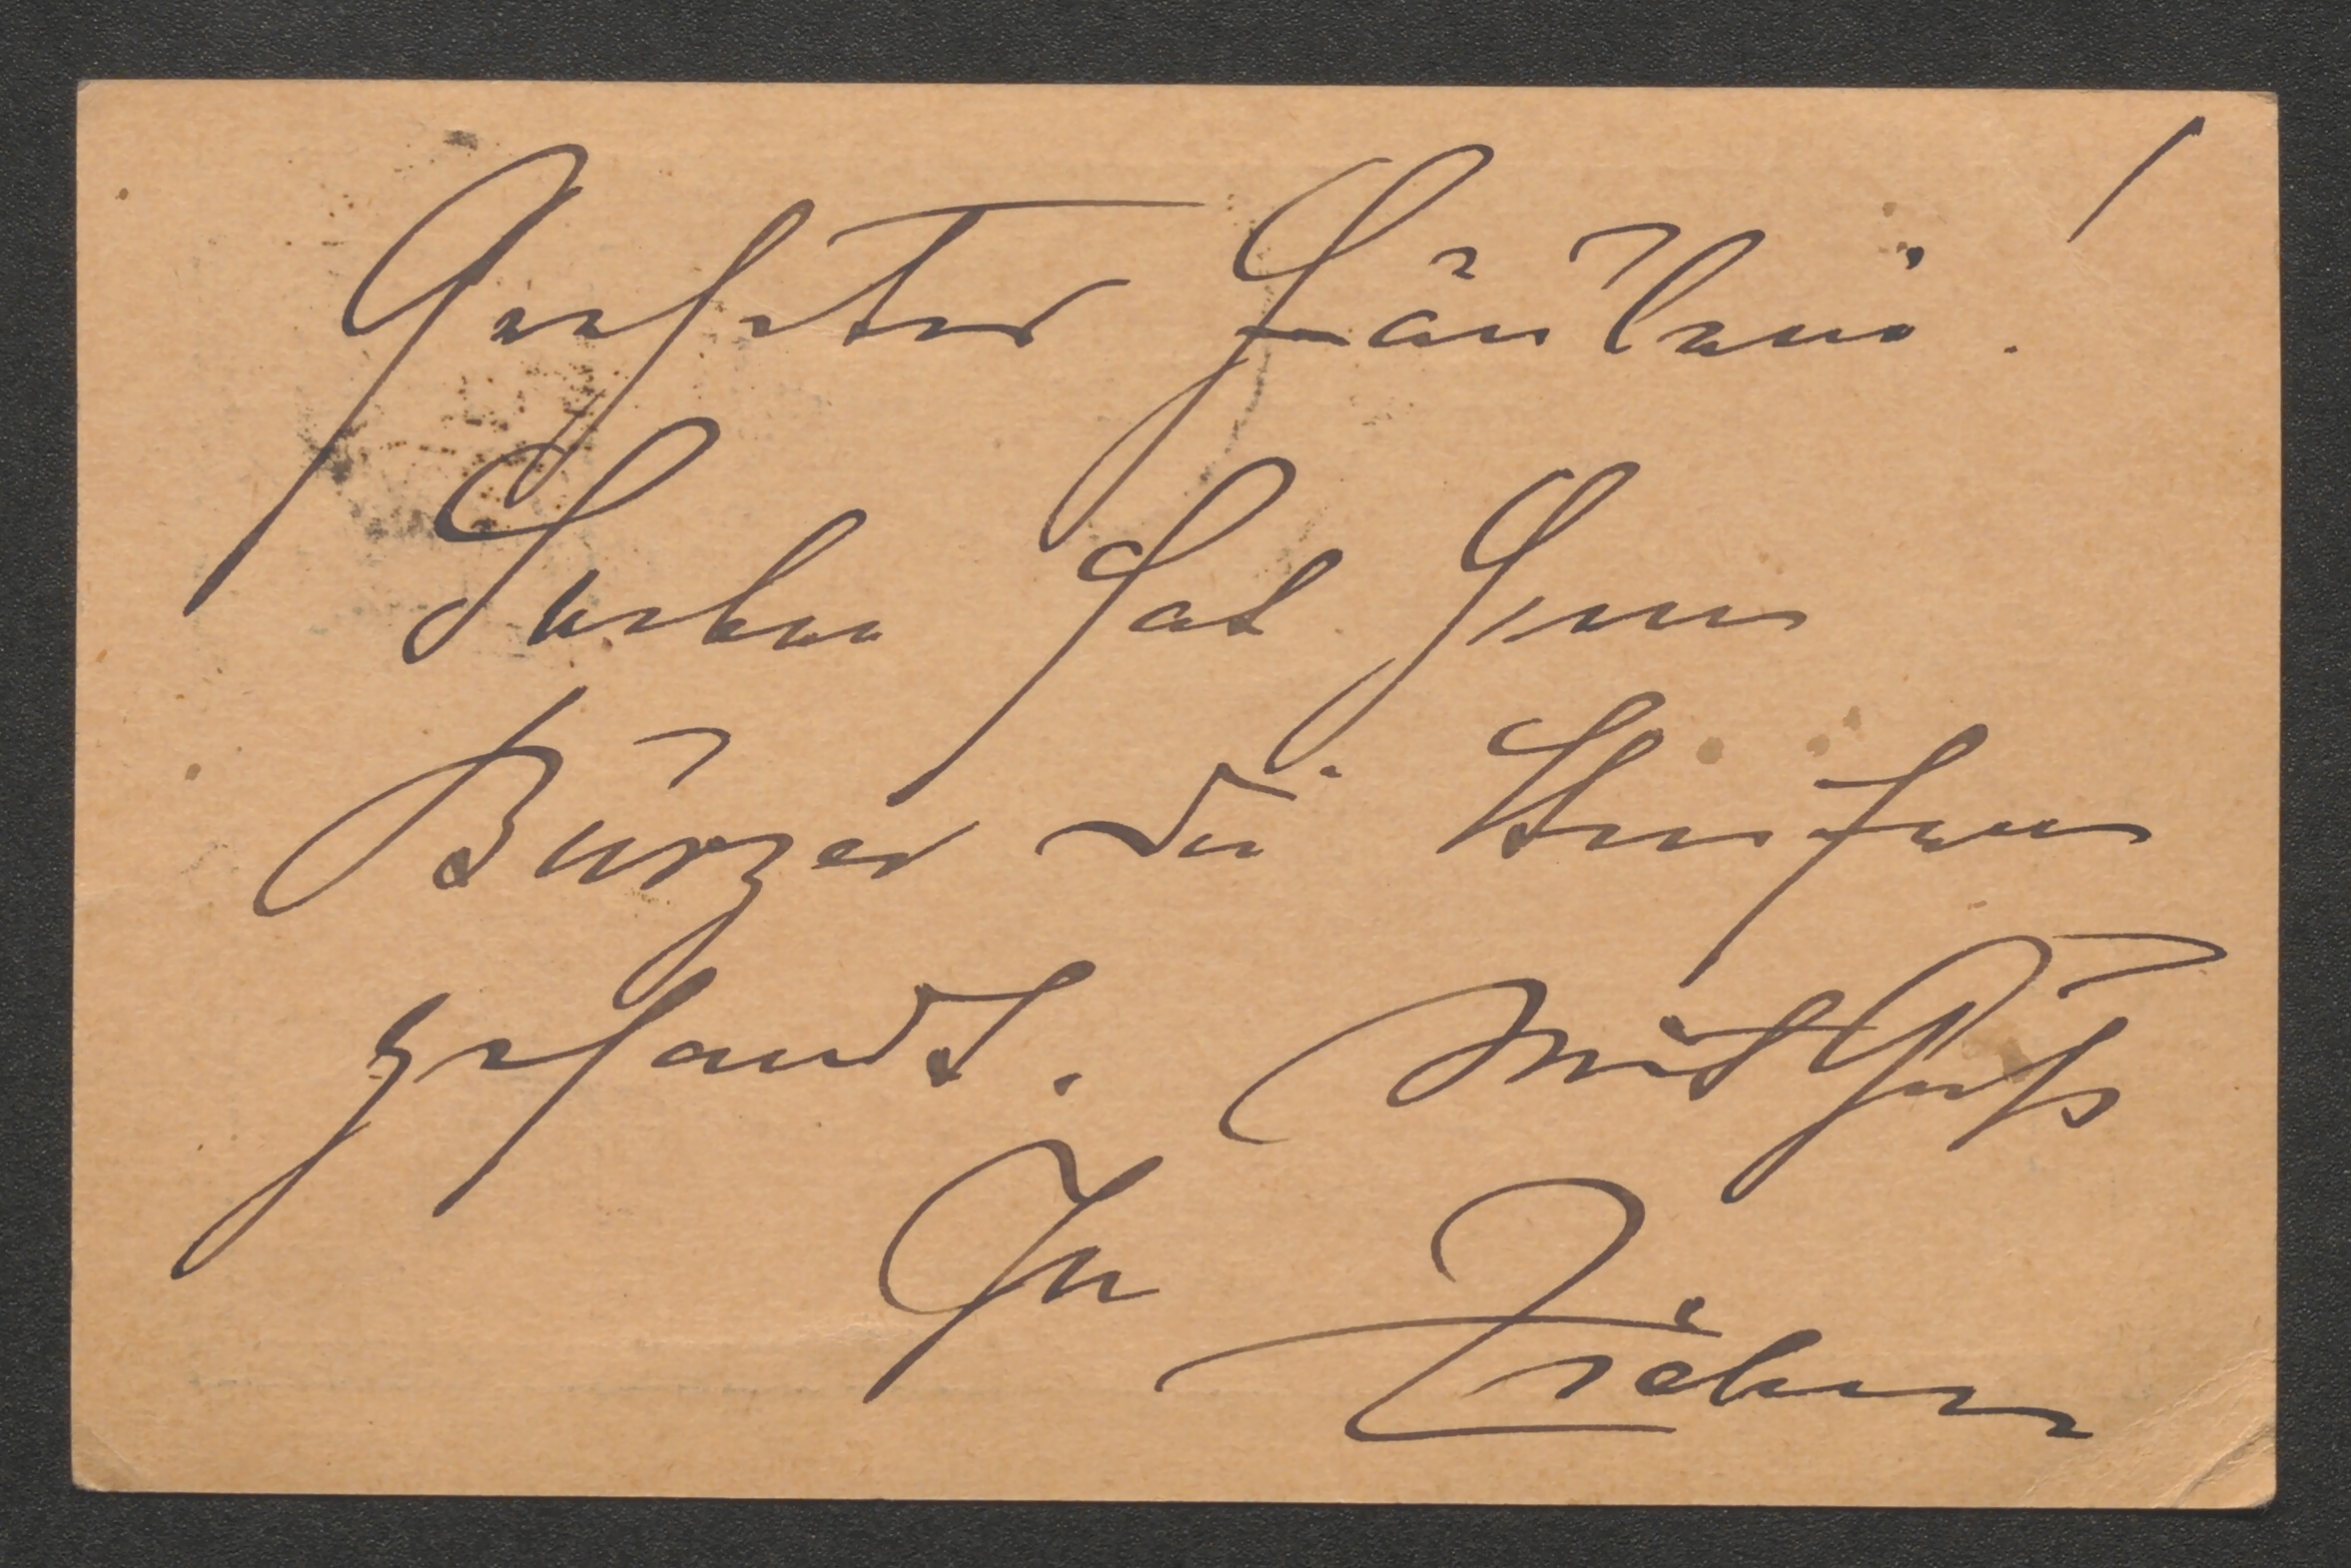 Geehrtes Fräulein!
Soeben hat Herr
Bürger die
gesandt. Mit Gruß
Ihr Ziehrer